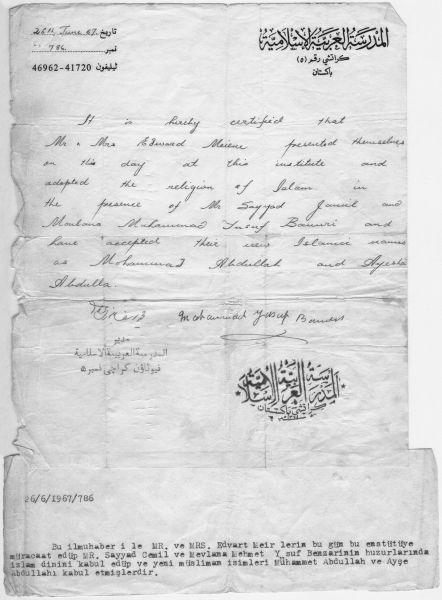 تاريخ 26th June 67.
نمبر 786
ٹیلیفون 41720-46962
المدرسة العربية الإسلامية
كراتشي رقم (٥)
باكستان
It is hereby certified that
Mr & Mrs Edward Meiene presented themselves
on this day at this institute and
adopted the religion of Islam in
the presence of Mr Sayyad Jamil and
Moulana Muhammad Yusuf Banuri and
have accepted their new Islamic names
as Mohammad Abdullah and Ayesha
Abdulla.
Mohammad Yusuf Banuri
مدير
المدرسة العربية الاسلامية
نيوٹاؤن كراچی نمبر ۵
المدرسة العربية الإسلامية
كراتشي باكستان
26/6/1967/786
Bu ilmuhaber i le MR. ve MRS. Edvart Meir lerin bu gün bu enstitüye
müracaat edüp MR. Sayyad Cemil ve Mevlana Mehmet Y suf Benzarinin huzurlarında
islam dinini kabul edüp ve yeni müsliman isimleri Mühammet Abdullah ve Ayşe
Abdullahı kabul etmişlerdir.